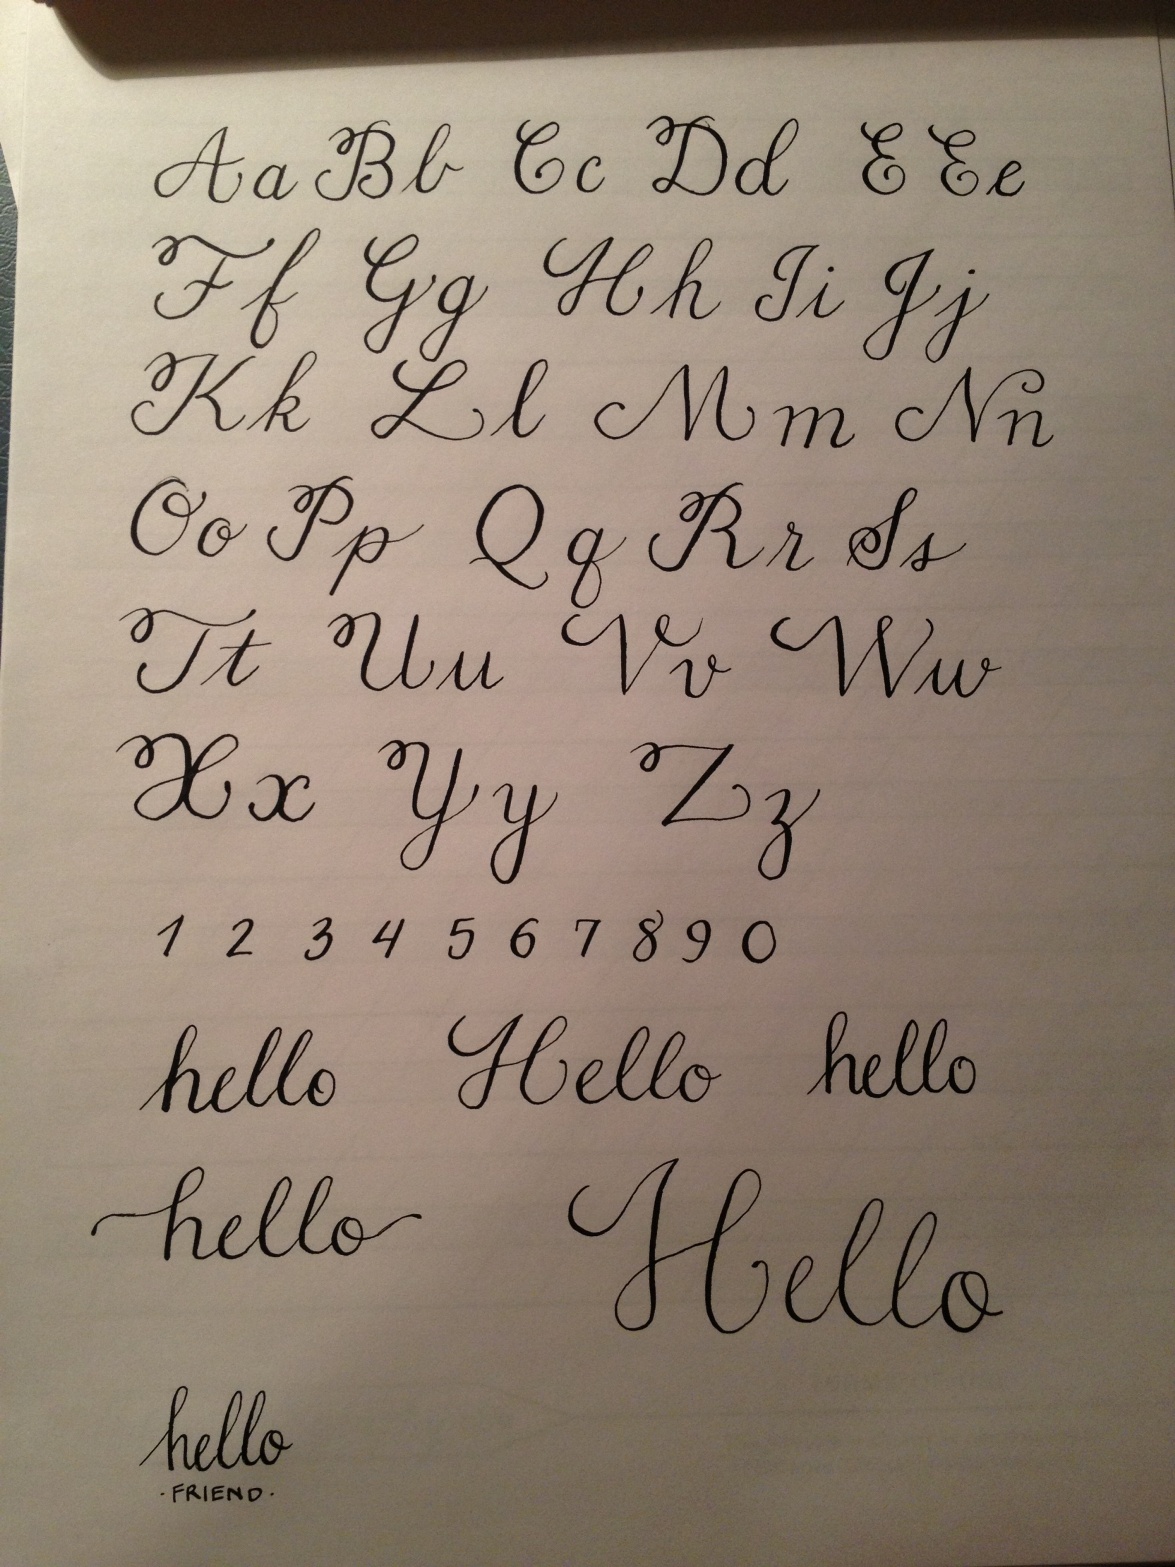 Aa Bb Cc Dd E Ee
Ff Gg Hh Ii Jj
Kk Ll Mm Nn
Oo Pp Qq Rr Ss
Tt Uu Vv Ww
Xx Yy Zz
1 2 3 4 5 6 7 8 9 0
hello Hello hello
hello Hello
hello
·FRIEND·